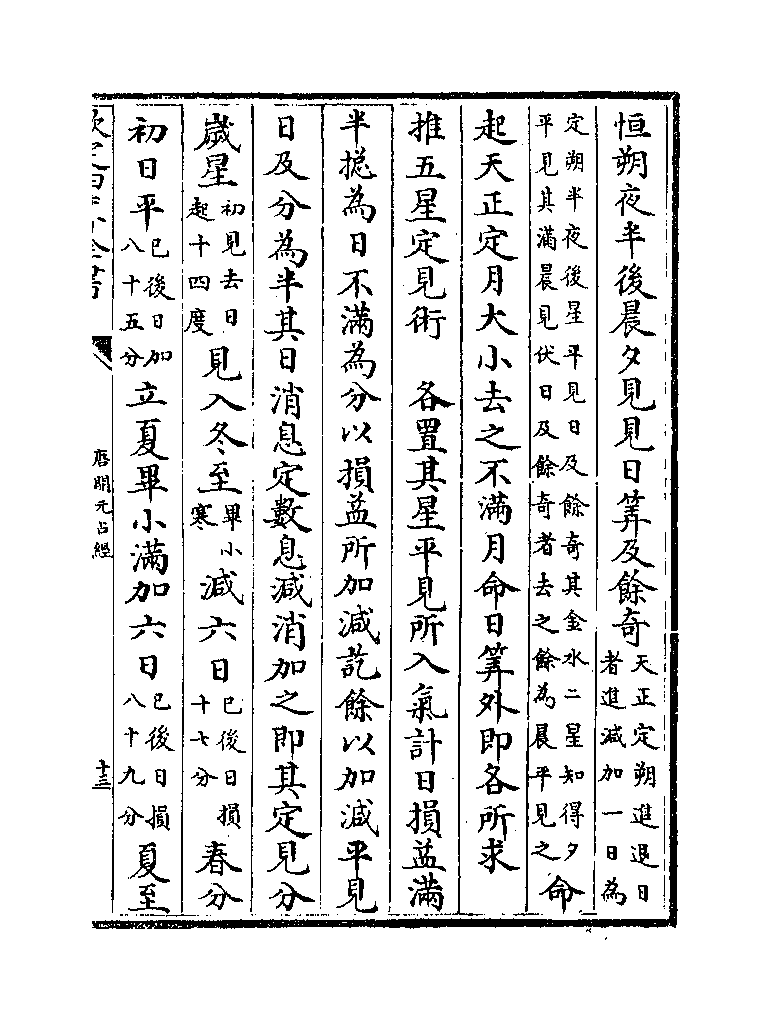 恒朔夜半後晨夕見見日筭及餘奇天正定朔進退日者進減加一日為
定朔半夜後星平見日及餘奇其金水二星知得夕平見其滿晨見伏日及餘奇者去之餘為晨平見之命
起天正定月大小去之不滿月命日筭外即各所求
推五星定見術　各置其星平見所入氣計日損益滿
半搃為日不滿為分以損益所加減訖餘以加減平見
日及分為半其日消息定數息減消加之即其定見分
歲星初見去日起十四度見入冬至畢小寒減六日已後日損十七分春分
初日平已後日加八十五分立夏畢小滿加六日已後日損八十九分夏至
唐開元占經
十三